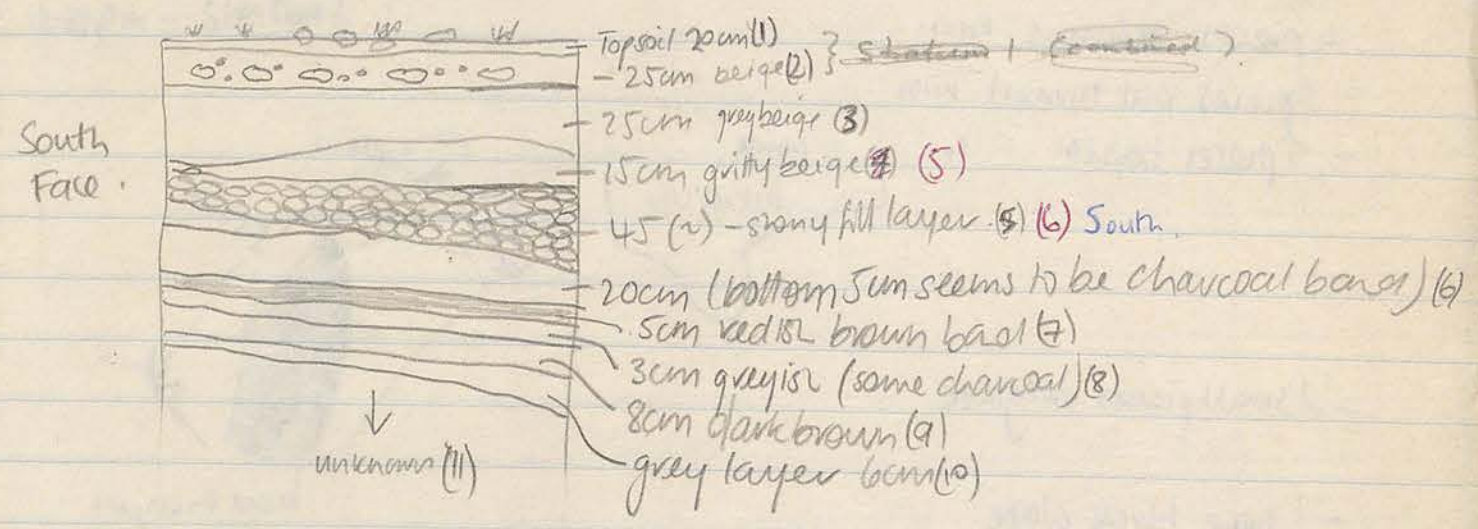 Topsoil 20cm (1)
- 25cm beige (2) } Stratum 1 (combined).
- 25cm greybeige (3)
South
Face.
- 15cm gritty beige (5)
- 45 (~) - stony fill layer. (5) (6) South.
- 20cm (bottom 5cm seems to be charcoal band) (6)
5cm redish brown band (7)
3cm greyish (some charcoal) (8)
8cm dark brown (9)
grey layer 6cm (10)
unknown (11)